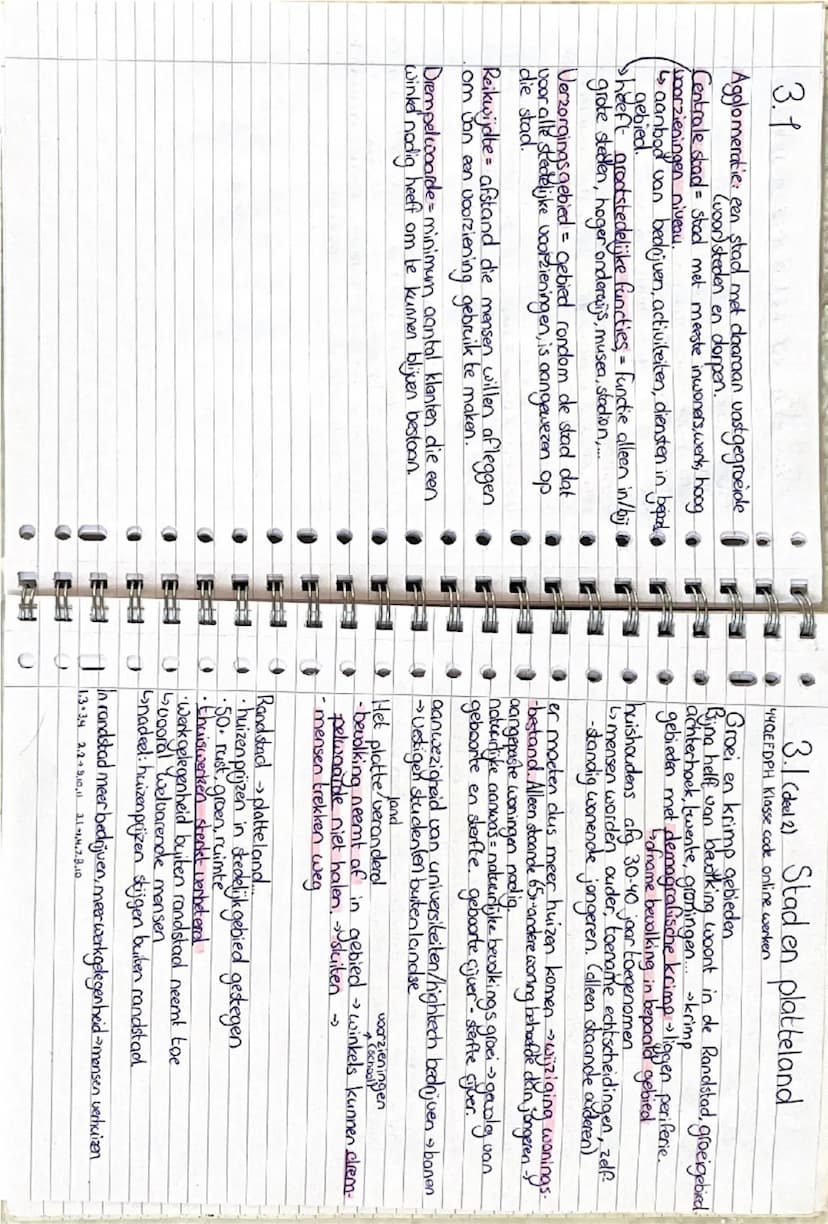 3.1
Agglomeratie: een stad met daaraan vastgegroeide
(voor)steden en dorpen.
Centrale stad = stad met meeste inwoners, werk, hoog
voorzieningen niveau.
↳ aanbod van bedrijven, activiteiten, diensten in bepaald
gebied.
↳ heeft grootstedelijke functies, = functie alleen in/bij
grote steden, hoger onderwijs, musea, stadion,...
Verzorgingsgebied = gebied rondom de stad dat
voor alle stedelijke voorzieningen, is aangewezen op
die stad.
Reikwijdte = afstand die mensen willen afleggen
om van een voorziening gebruik te maken.
Drempelwaarde = minimum aantal klanten die een
winkel nodig heeft om te kunnen blijven bestaan.
3.1 (deel 2) Stad en platteland
klasse code online werken
Groei en krimp gebieden
Bijna helft van bevolking woont in de Randstad, groeigebied.
achterhoek, twente, groningen... → krimp
gebieden met demografische krimp → liggen periferie.
↳ afname bevolking in bepaald gebied
huishoudens afg 30-40 jaar toegenomen
↳ mensen worden ouder, toename echtscheidingen, zelf-
standig wonende jongeren. (alleen staande ouderen)
er moeten dus meer huizen komen → wijziging wonings-
bestand. Alleen staande 65+ andere woning behoefte dan jongeren →
aangepaste woningen nodig.
natuurlijke aanwas = natuurlijke bevolkings groei → gevolg van
geboorte en sterfte. geboorte cijver - sterfte cijver.
aanwezigheid van universiteiten/hightech bedrijven → banen
→ vestigen studenten buitenlandse
Het platteland veranderd
voorzieningen
↑ (school)
- bevolking neemt af in gebied → winkels kunnen drem-
pelwaarde niet halen. → sluiten →
- mensen trekken weg
Randstad → platteland...
· huizenprijzen in stedelijk gebied gestegen
· 50+ rust, groen, ruimte
· thuiswerken sterkt verbeterd
· werkgelegenheid buiten randstad neemt toe
↳ vooral welvarende mensen
↳ nadeel: huizenprijzen stijgen buiten randstad
In randstad meer bedrijven, meer werkgelegenheid → mensen verhuizen